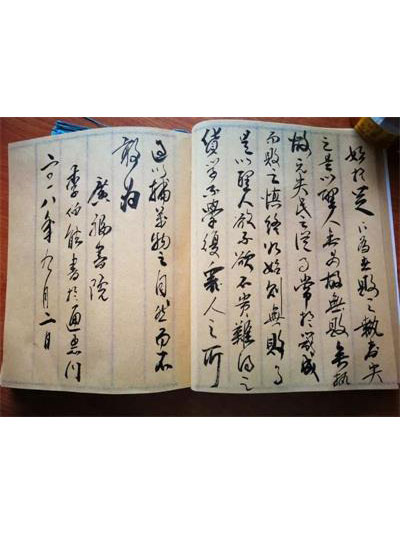 始於足下為者敗之執者失
之是以聖人無為故無敗無執
故无失民之從事常於幾成
而敗之慎終如始則無敗事
是以聖人欲不欲不貴難得之
貨學不學復眾人之所
過以輔萬物之自然而不
敢為
廣福書院
李伯能書於通惠門
二〇一八年九月二日